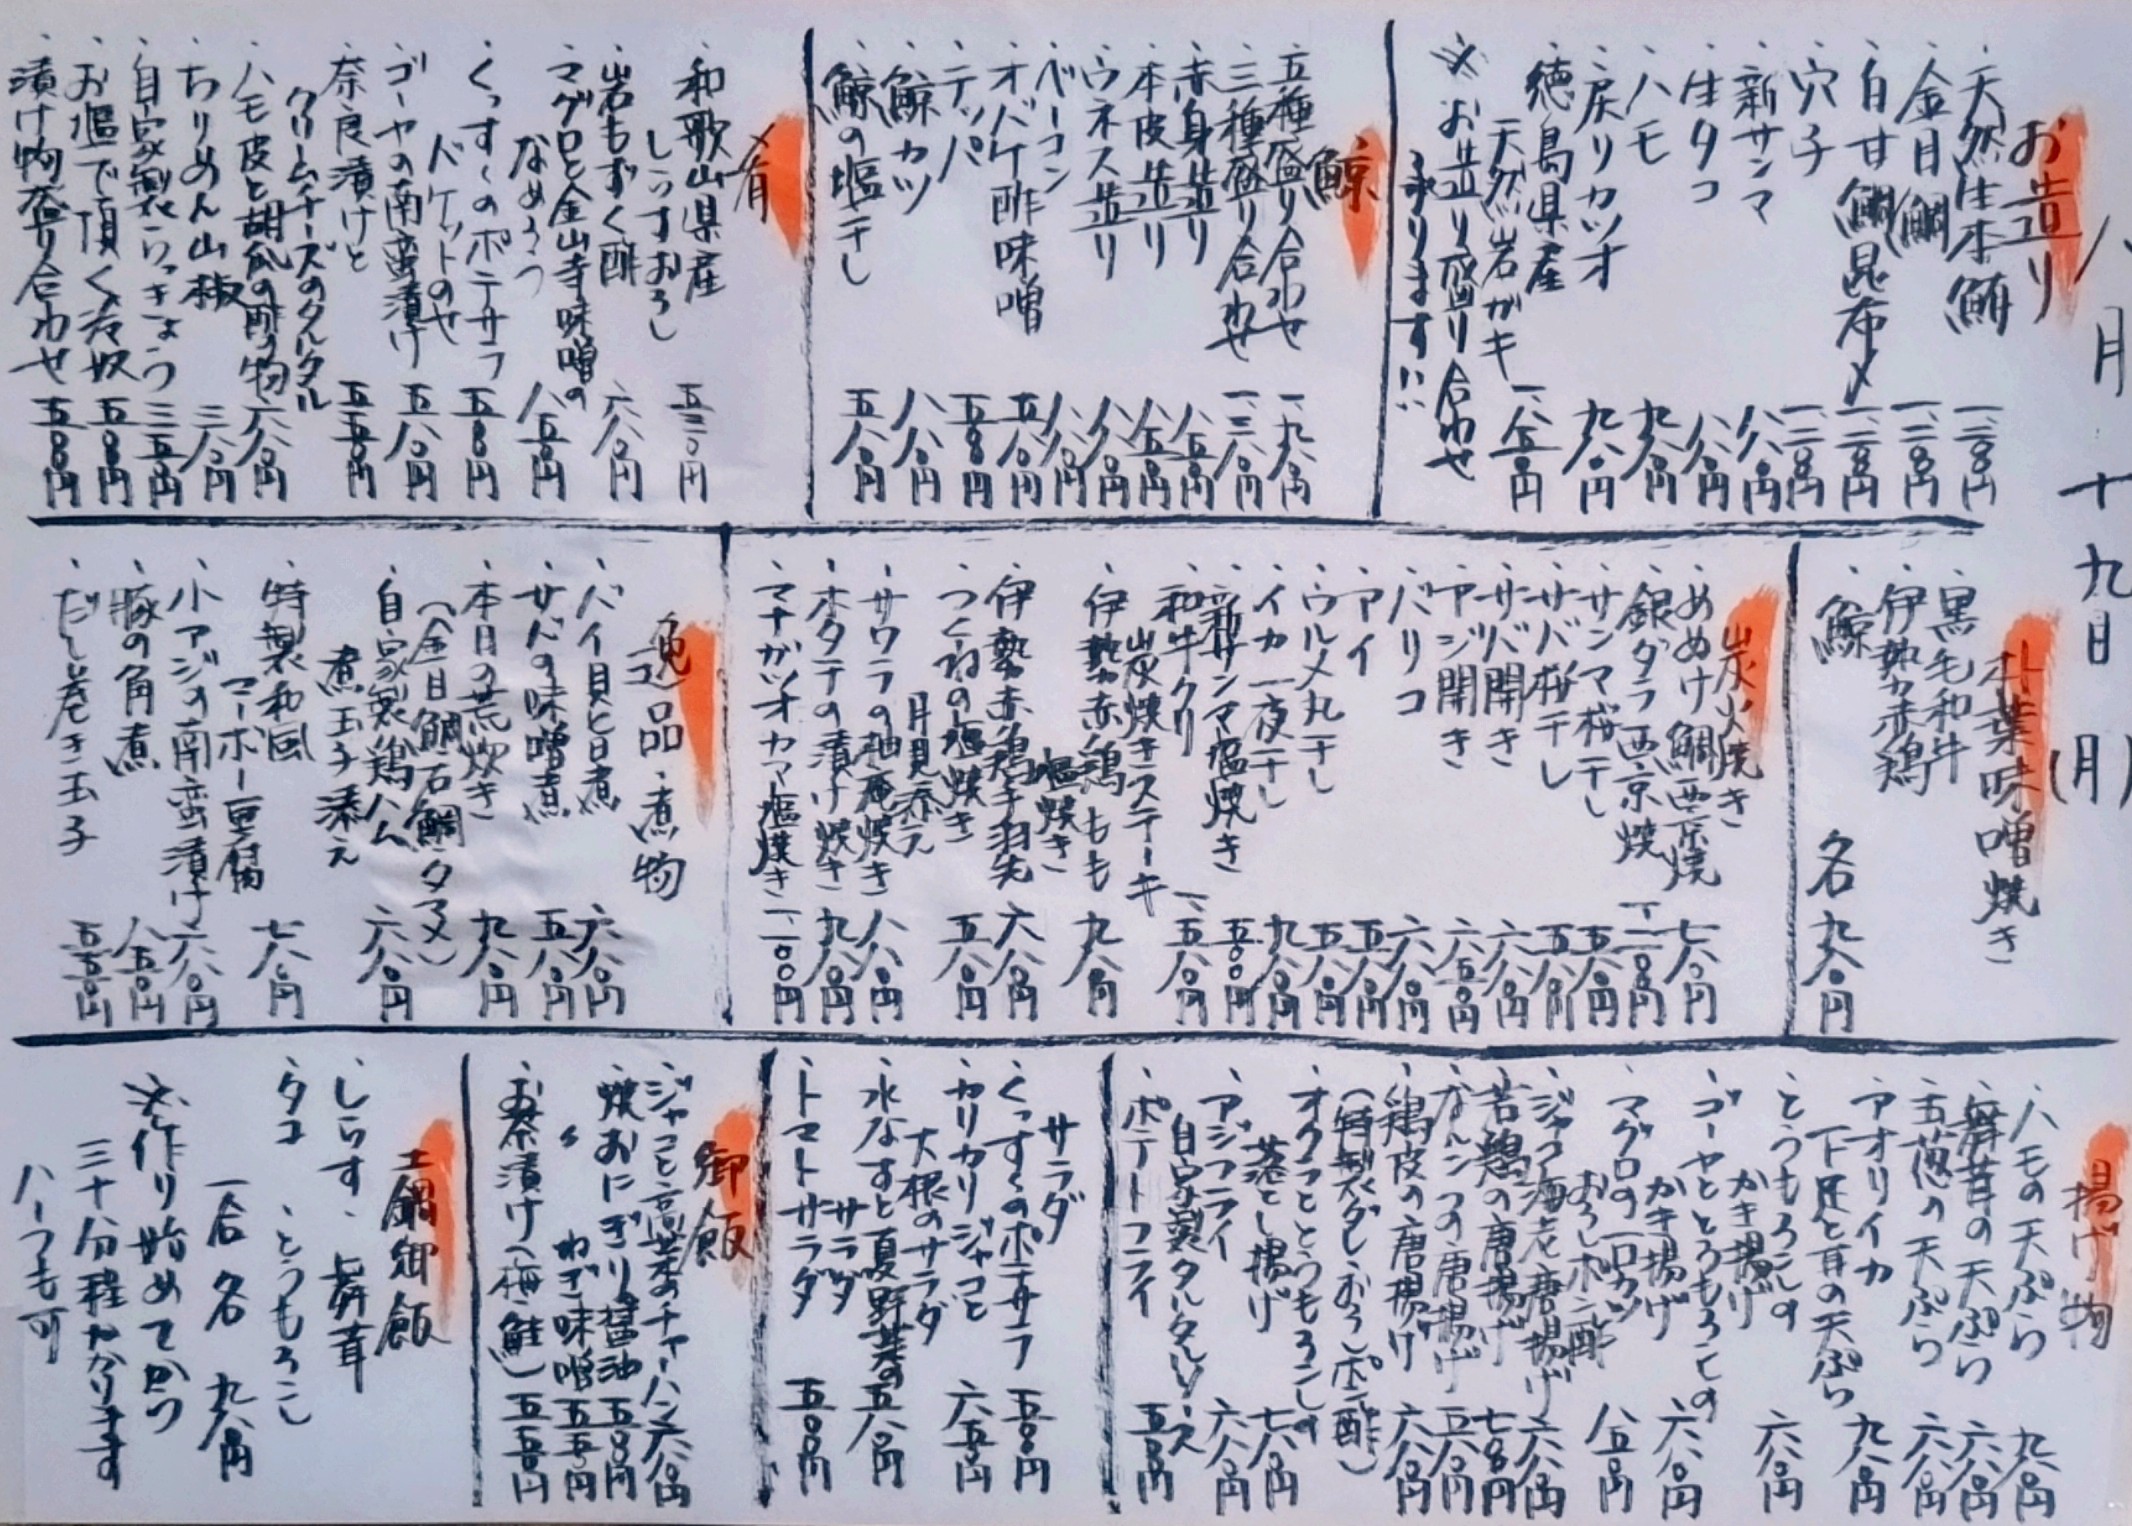 八月十九日(月)
お造り
、天然生本鮪 一、二〇〇円
、金目鯛 一、二〇〇円
、白甘鯛昆布〆 一、二〇〇円
、穴子 一、二〇〇円
、新サンマ 八八〇円
、生タコ 八八〇円
、ハモ 九八〇円
、戻りカツオ 九八〇円
、徳島県産
天然岩ガキ 一、八五〇円
※お造り盛り合わせ
承ります!!
鯨
、五種盛り合わせ 一、九八〇円
、三種盛り合わせ 一、三八〇円
、赤身造り 八五〇円
、本皮造り 八五〇円
、ウネス造り 八八〇円
、ベーコン 八八〇円
、オバケ酢味噌 五八〇円
、テッパ 五八〇円
、鯨カツ 八八〇円
、鯨の塩干し 五八〇円
肴
、和歌山県産
しらすおろし 五三〇円
、岩もずく酢 六八〇円
、マグロと金山寺味噌の
なめろう 八五〇円
、くっすぐのポテサラ
バケットのせ 五八〇円
、ゴーヤの南蛮漬け 五八〇円
、奈良漬けと
クリームチーズのタルタル 五五〇円
、ハモ皮と胡瓜の酢の物 六八〇円
、ちりめん山椒 三八〇円
、自家製らっきょう 三五〇円
、お塩で頂く冷奴 五〇〇円
、漬け物盛り合わせ 五〇〇円
朴葉味噌焼き
、黒毛和牛
、伊勢赤鶏
、鯨 各九八〇円
炭火焼き
、めぬけ鯛西京焼 七八〇円
、銀ダラ西京焼 一、二〇〇円
、サンマ桜干し 五八〇円
、サバ桜干し 五八〇円
、サバ開き 六八〇円
、アジ開き 六五〇円
、バリコ 六八〇円
、アイ 五八〇円
、ウルメ丸干し 五五〇円
、イカ一夜干し 九八〇円
、新サンマ塩焼き 五〇〇円
、和牛クリ
炭焼きステーキ 一、五八〇円
、伊勢赤鶏もも
塩焼き 九八〇円
、伊勢赤鶏手羽先 六八〇円
、つくねの塩焼き
月見添え 五八〇円
、サワラの柚庵焼き 八八〇円
、ホタテの漬け焼き 九八〇円
、マナガツオカマ塩焼き 一、二〇〇円
逸品・煮物
、バイ貝旨煮 六八〇円
、サバの味噌煮 五八〇円
、本日の荒炊き
(金目鯛、石鯛、タマメ) 九八〇円
、自家製鶏ハム
煮玉子添え 六八〇円
、特製和風
マーボー豆腐 七八〇円
、小アジの南蛮漬け 六八〇円
、豚の角煮 八五〇円
、だし巻き玉子 五五〇円
揚げ物
、ハモの天ぷら 九八〇円
、舞茸の天ぷら 六八〇円
、玉葱の天ぷら 六八〇円
、アオリイカ
下足と耳の天ぷら 九八〇円
、とうもろこしの
かき揚げ 六八〇円
、ゴーヤととうもろこしの
かき揚げ 六八〇円
、マグロの一口カツ
おろしポン酢 八五〇円
、ジャコ海老唐揚げ 六八〇円
、若鶏の唐揚げ 七八〇円
、なんこつの唐揚げ 五八〇円
、鶏皮の唐揚げ 六八〇円
(特製ダレ、おろしポン酢)
、オクラととうもろこしの
落とし揚げ 七八〇円
、アジフライ
自家製タルタルソース 六八〇円
、ポテトフライ 五五〇円
サラダ
、くっすぐのポテサラ 五〇〇円
、カリカリジャコと
大根のサラダ 六五〇円
、水なすと夏野菜の
サラダ 五八〇円
、トマトサラダ 五〇〇円
御飯
、ジャコと高菜のチャーハン 六八〇円
、焼おにぎり醤油 五〇〇円
〃 ねぎ味噌 五五〇円
、お茶漬け(梅、鮭) 五五〇円
土鍋御飯
、しらす、舞茸
、タコ、とうもろこし
一合各九八〇円
※作り始めてから
三十分程かかります
ハーフも可